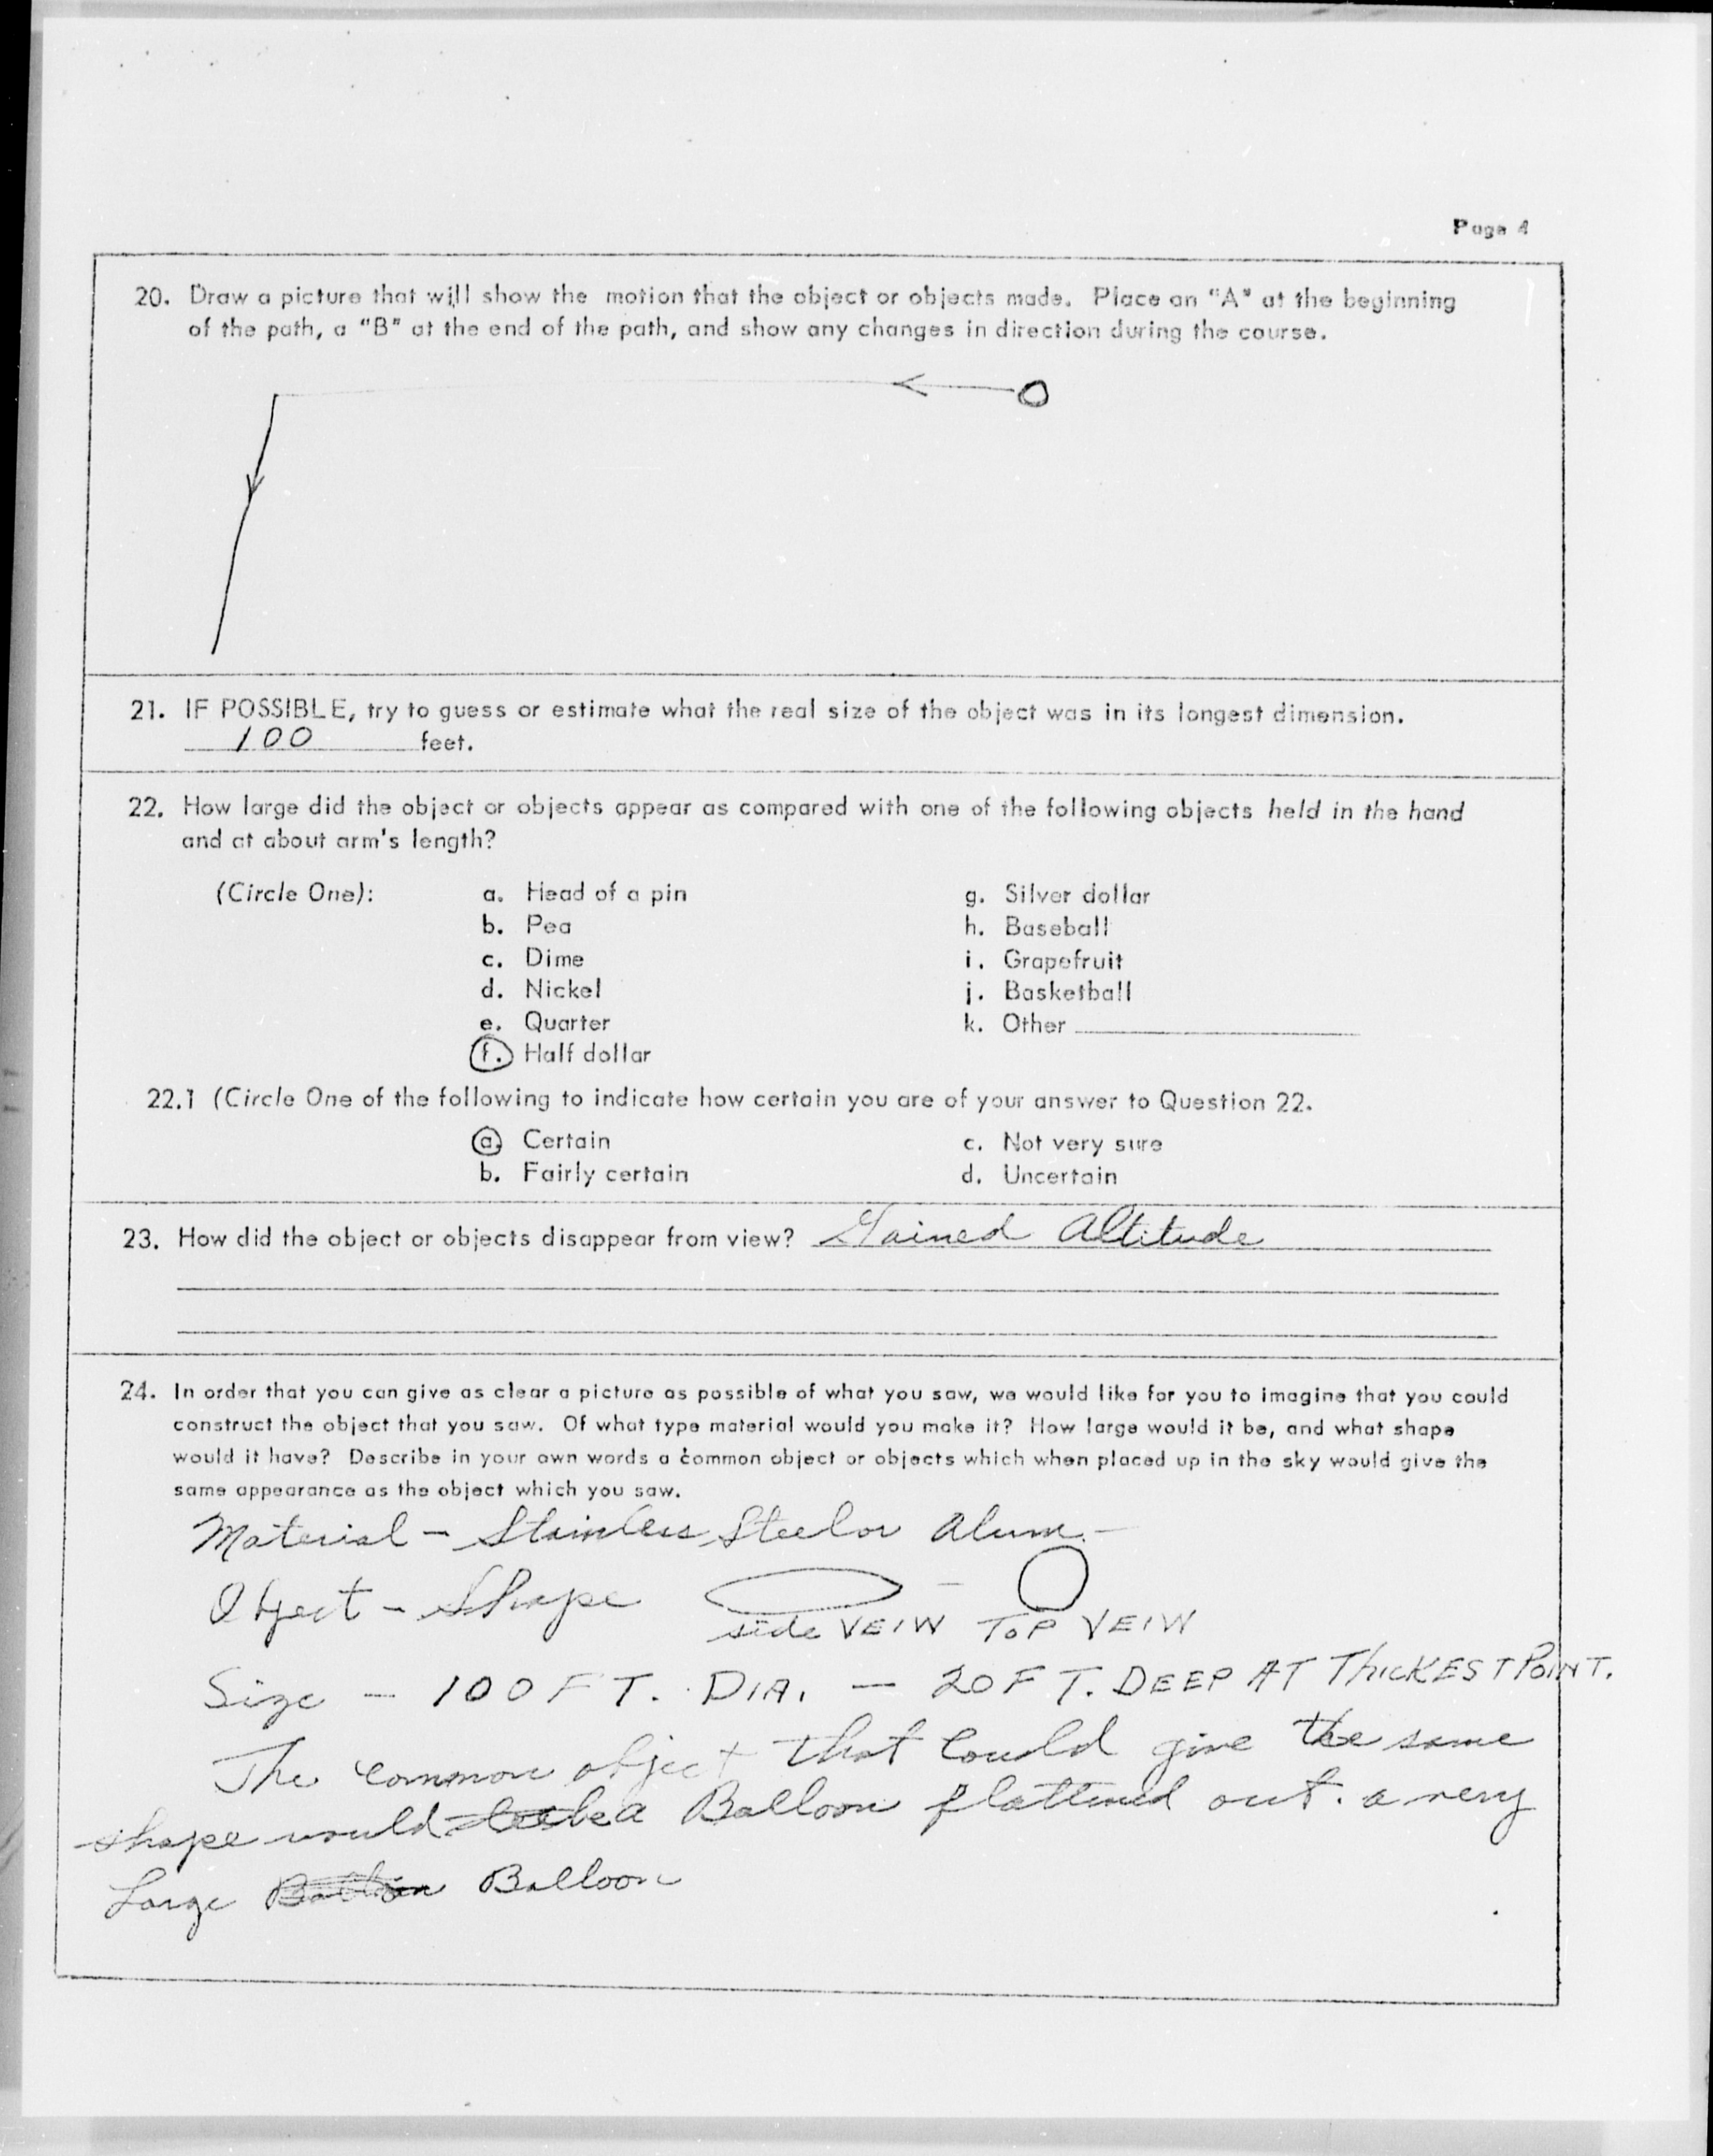 Page 4
20. Draw a picture that will show the motion that the object or objects made. Place an "A" at the beginning
of the path, a "B" at the end of the path, and show any changes in direction during the course.
21. IF POSSIBLE, try to guess or estimate what the real size of the object was in its longest dimension.
100 feet.
22. How large did the object or objects appear as compared with one of the following objects held in the hand
and at about arm's length?
(Circle One): a. Head of a pin g. Silver dollar
b. Pea h. Baseball
c. Dime i. Grapefruit
d. Nickel j. Basketball
e. Quarter k. Other
f. Half dollar
22.1 (Circle One of the following to indicate how certain you are of your answer to Question 22.
a. Certain c. Not very sure
b. Fairly certain d. Uncertain
23. How did the object or objects disappear from view? Gained Altitude
24. In order that you can give as clear a picture as possible of what you saw, we would like for you to imagine that you could
construct the object that you saw. Of what type material would you make it? How large would it be, and what shape
would it have? Describe in your own words a common object or objects which when placed up in the sky would give the
same appearance as the object which you saw.
Material - Stainless Steel or Alum. -
Object - Shape -
side VEIW TOP VEIW
Size - 100 FT. DIA. - 20 FT. DEEP AT THICKEST POINT.
The common object that could give the same
shape would be a Balloon flattened out. a very
Large Balloon